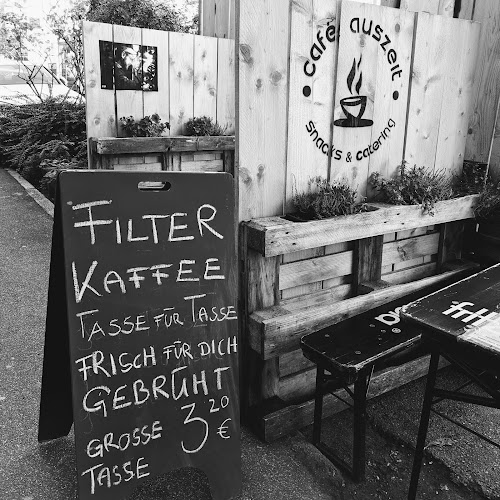 café auszeit
snacks & catering
FILTER
KAFFEE
TASSE FÜR TASSE
FRISCH FÜR DICH
GEBRÜHT
GROSSE 3 20 €
TASSE